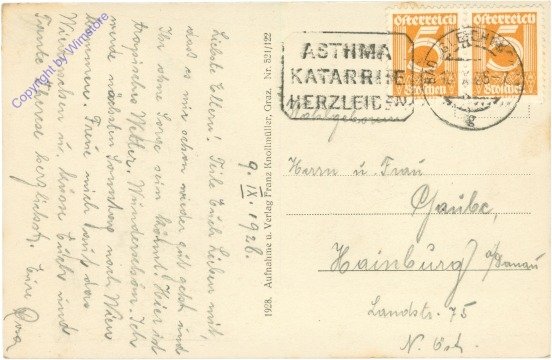 Copyright by Wimstore
Liebste Eltern! Teile Euch Lieben mit,
dass es mir schon wieder gut geht und
Ihr ohne Sorge sein könnt! Hier ist
tropisches Wetter. Wunderschön. Ich
werde nächsten Sonntag nach Wien
kommen. Freue mich auf das
Wiedersehen u. küsse Euch und
Tante herzlichst. Eure Rosa
9. IX. 1928.
1928. Aufnahme u. Verlag Franz Knollmüller, Graz. Nr. 521/122
ASTHMA
KATARRHE
HERZLEIDEN
Österreich
5
Groschen
Österreich
5
Groschen
Wohlgeboren
Herrn u. Frau
Hainburg a/Donau
Landstr. 75
N. Öst.